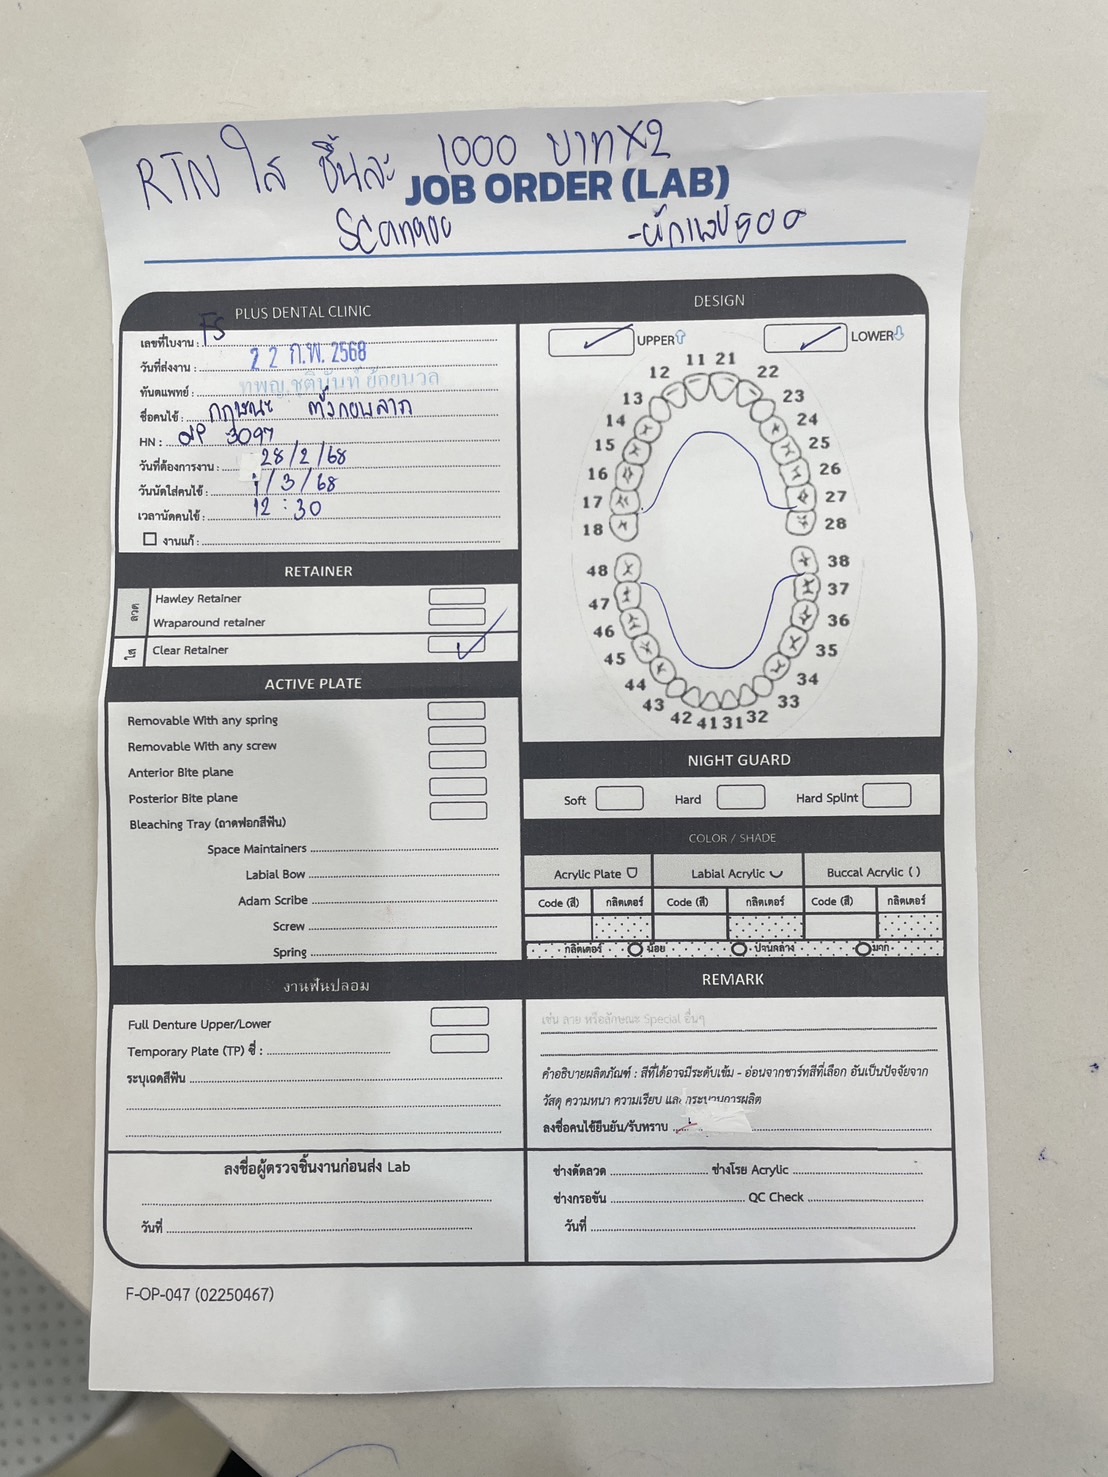 RTN ใส ชิ้นละ 1000 บาท X2
JOB ORDER (LAB)
PLUS DENTAL CLINIC
เลขที่ใบงาน : FS
วันที่ส่งงาน : 22 ก.พ. 2568
ทันตแพทย์ : ทพญ.ชุตินันท์
ชื่อคนไข้ :
HN : 3097
วันที่ต้องการงาน : 28/2/68
วันนัดใส่คนไข้ : 1/3/68
เวลานัดคนไข้ : 12:30
งานแก้ :
RETAINER
ลวด
Hawley Retainer
Wraparound retainer
ใส
Clear Retainer
ACTIVE PLATE
Removable With any spring
Removable With any screw
Anterior Bite plane
Posterior Bite plane
Bleaching Tray (ถาดฟอกสีฟัน)
Space Maintainers
Labial Bow
Adam Scribe
Screw
Spring
งานฟันปลอม
Full Denture Upper/Lower
Temporary Plate (TP) ซี่ :
ระบุเฉดสีฟัน
ลงชื่อผู้ตรวจชิ้นงานก่อนส่ง Lab
วันที่
DESIGN
UPPER LOWER
11 21
12 22
13 23
14 24
15 25
16 26
17 27
18 28
48 38
47 37
46 36
45 35
44 34
43 33
42 41 31 32
NIGHT GUARD
Soft Hard Hard Splint
COLOR / SHADE
Acrylic Plate Labial Acrylic Buccal Acrylic ( )
Code (สี) กลิตเตอร์ Code (สี) กลิตเตอร์ Code (สี) กลิตเตอร์
กลิตเตอร์ น้อย ปานกลาง มาก
REMARK
เช่น ลาย หรือลักษณะ Special อื่นๆ
คำอธิบายผลิตภัณฑ์ : สีที่ได้อาจมีระดับเข้ม - อ่อนจากชาร์ทสีที่เลือก อันเป็นปัจจัยจาก
วัสดุ ความหนา ความเรียบ และ กระบวนการผลิต
ลงชื่อคนไข้ยืนยัน/รับทราบ
ช่างดัดลวด ช่างโรย Acrylic
ช่างกรอขัน QC Check
วันที่
F-OP-047 (02250467)